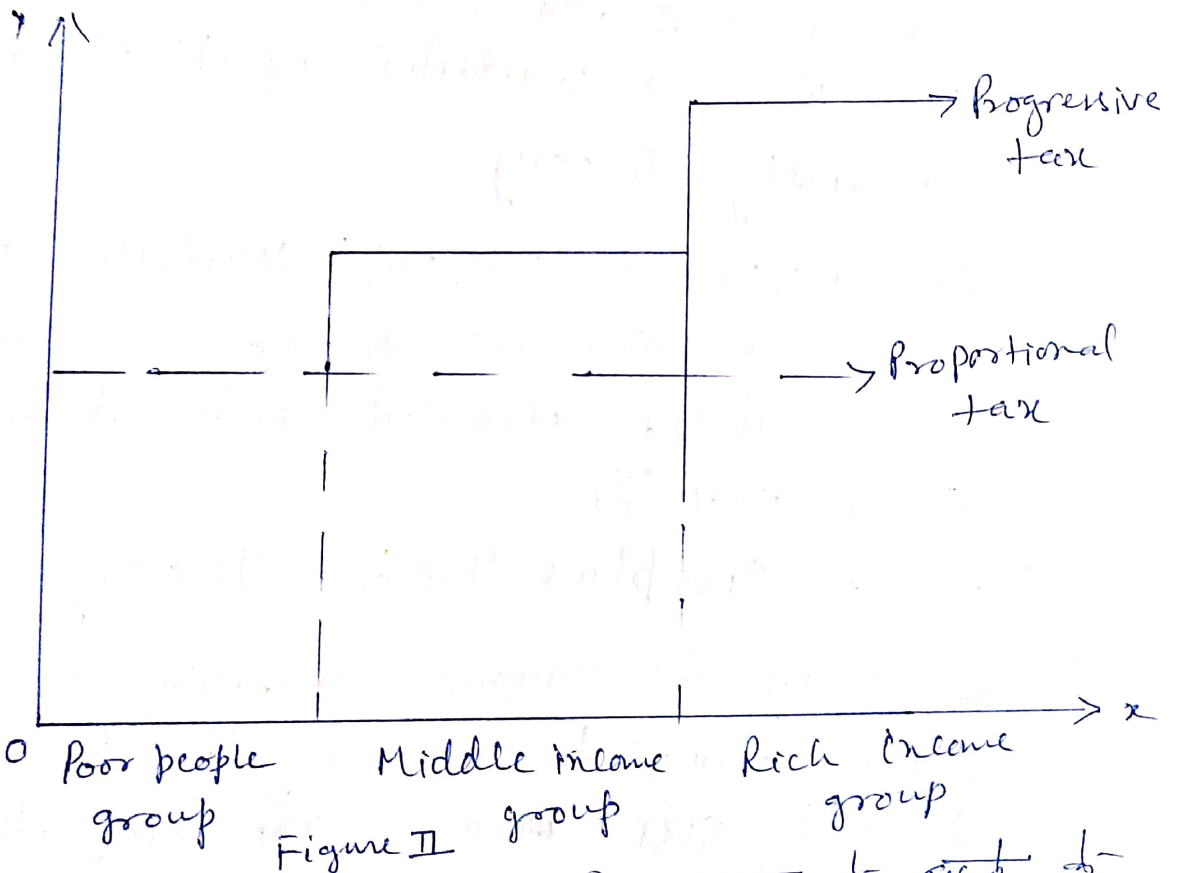 Y
Progressive
tax
Proportional
tax
x
O
Poor people
group
Middle income
group
Rich income
group
Figure II